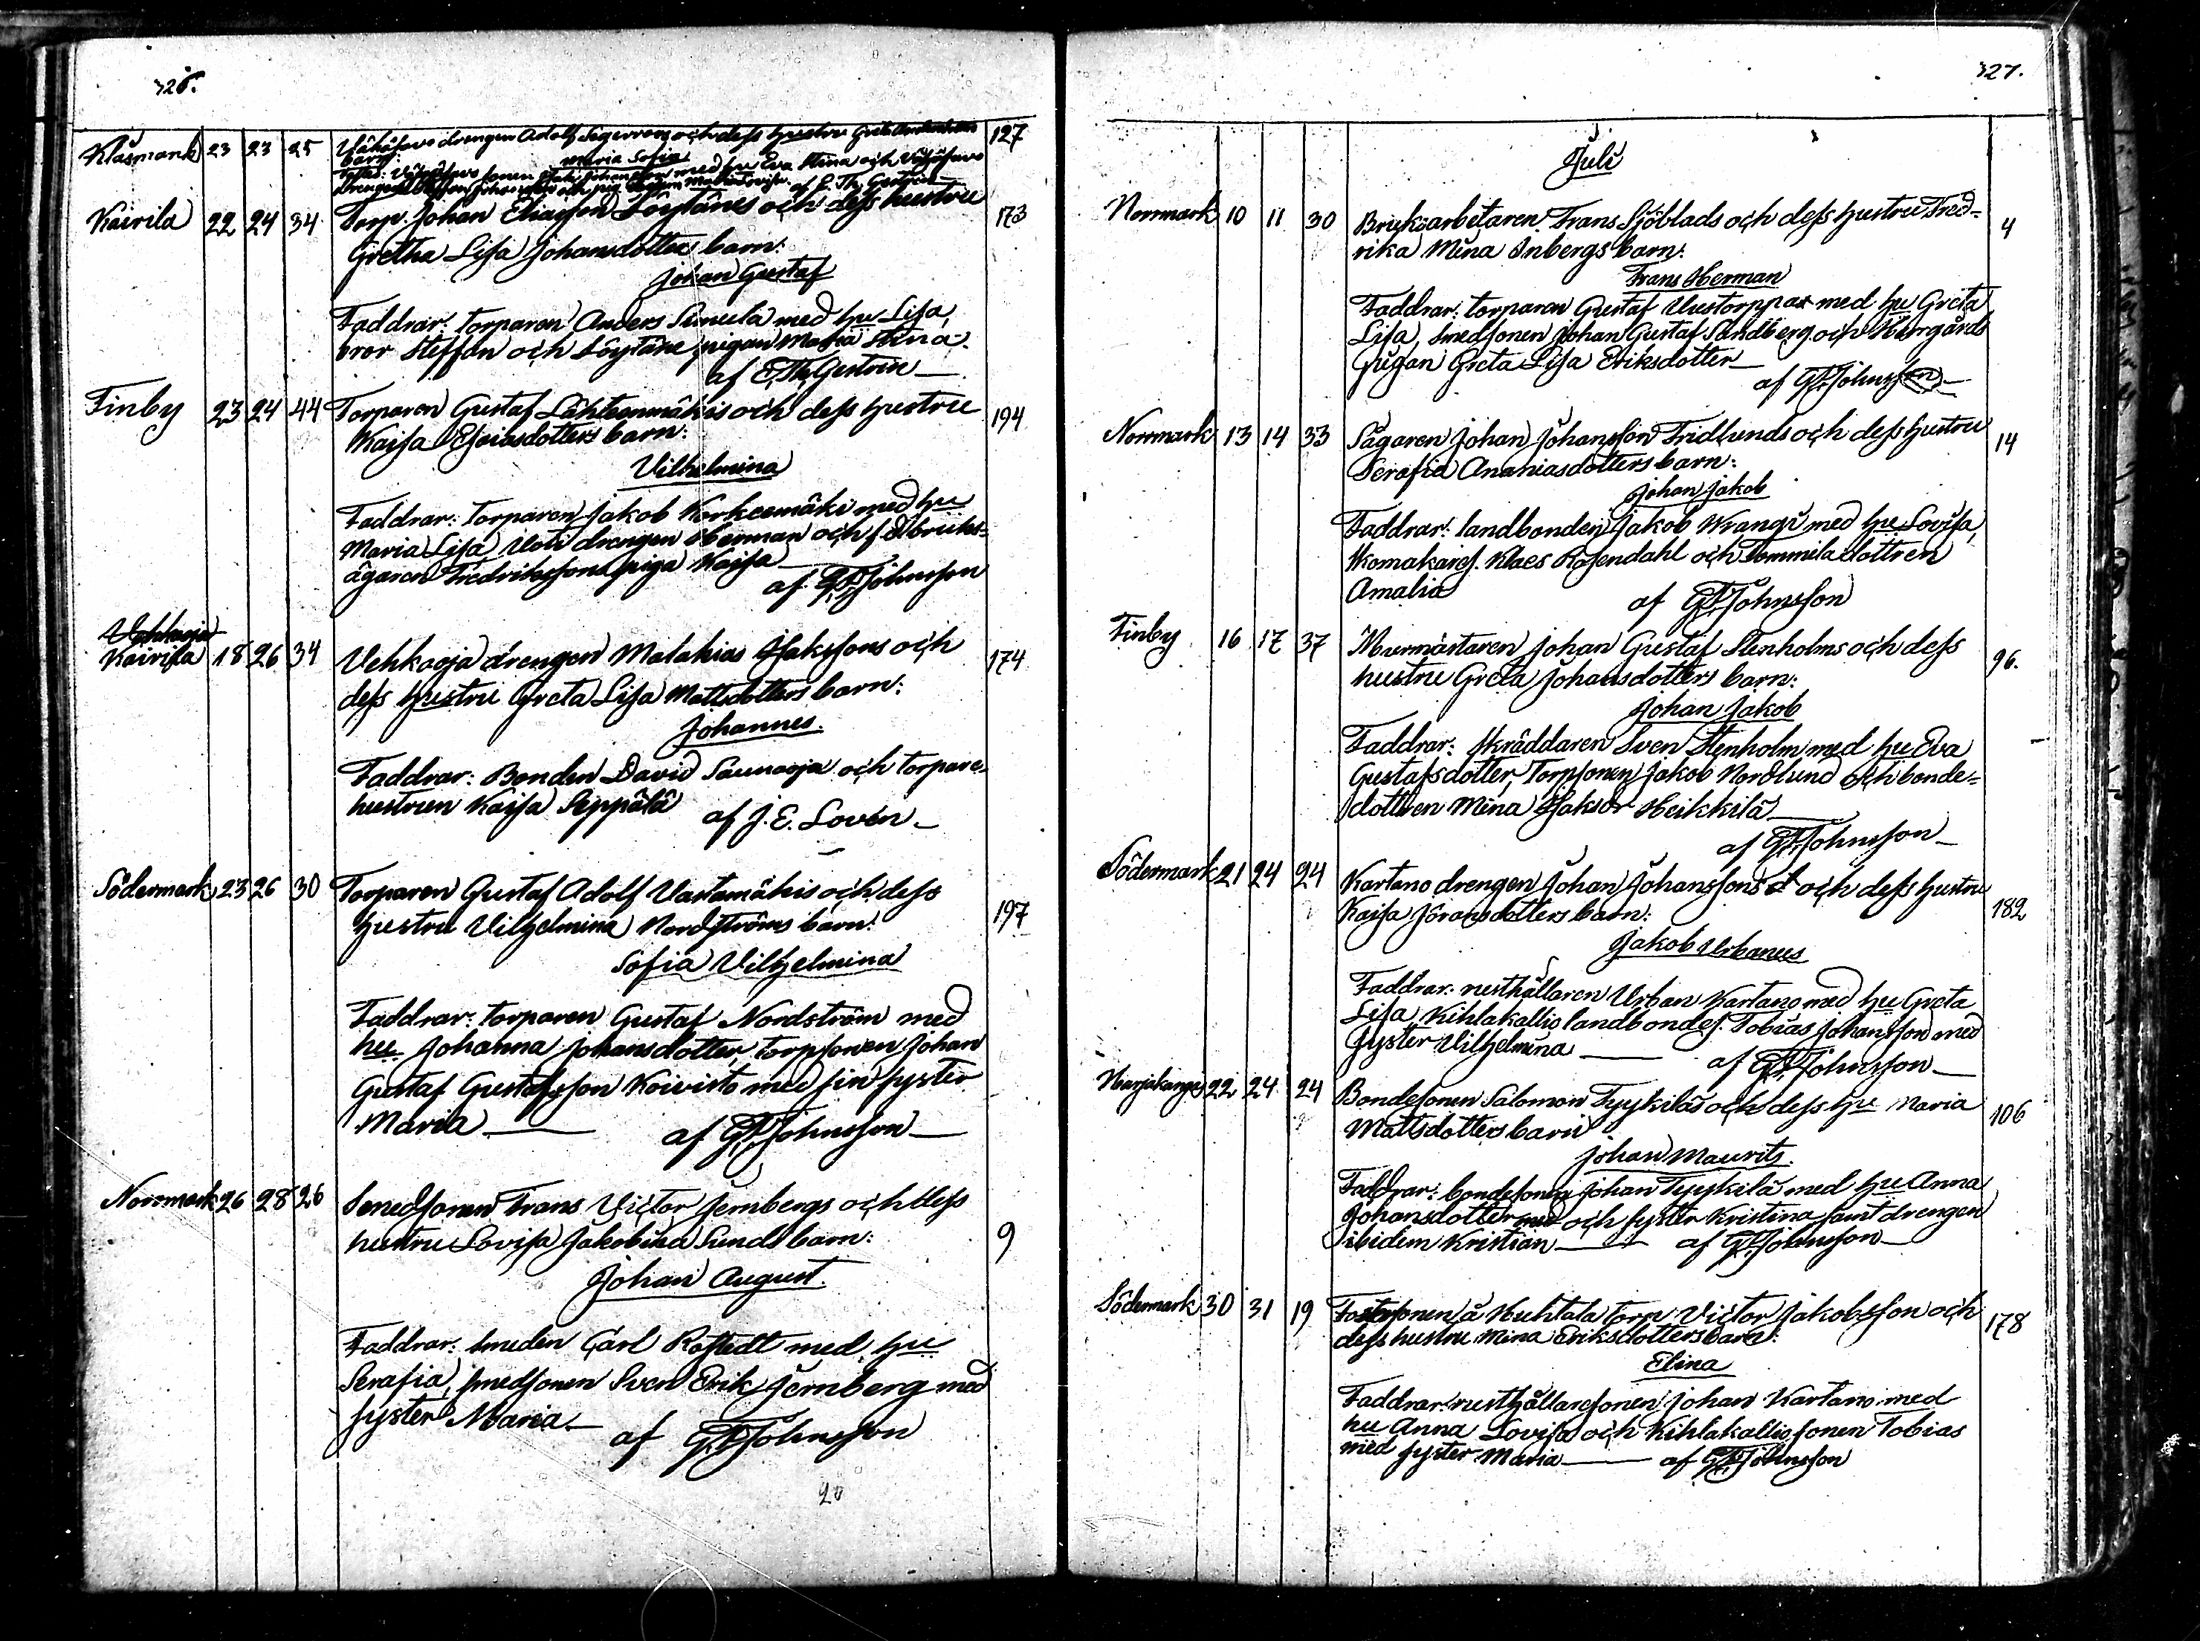 326.
Klåsmark 23 23 25 Vähäsavo drengen Adolf Segerroos och dess hustru Greta 127
barn:
Maria Sofia
med hu Eva Stina och Vähäsavo
af E. Th. Gestrin
Kairila 22 24 34 Torp. Johan Eliasson Löytänes och dess hustru 173
Gretha Lisa Johansdotters barn:
Johan Gustaf
Faddrar: torparen Anders Simula med hu Lisa,
bror Steffan och Löytäne pigan Maria Stina.
af E. Th. Gestrin
Finby 23 24 44 Torparen Gustaf Lähteenmäkis och dess hustru 194
Kaisa Esaiasdotters barn:
Vilhelmina
Faddrar: torparen Jakob Korkeemäki med hu
Maria Lisa, Uoti drengen Herman och f. d. bruks-
ägaren Fredrikssons piga Kaisa
af G. F. Johnsson
Vehkaoja
Kairila 18 26 34 Vehkaoja drengen Malakias Isakssons och 174
dess hustru Greta Lisa Mattsdotters barn:
Johannes.
Faddrar: Bonden David Saunaoja och torpare-
hustrun Kaisa Seppälä
af J. E. Lovén
Södermark 23 26 30 Torparen Gustaf Adolf Vartamäkis och dess 197
hustru Vilhelmina Nordströms barn:
Sofia Vilhelmina
Faddrar: torparen Gustaf Nordström med
hu Johanna Johansdotter torpsonen Johan
Gustaf Gustafsson Koivisto med sin syster
Maria
af G. F. Johnsson
Norrmark 26 28 26 Smedsonen Frans Victor Jernbergs och dess 9
hustru Lovisa Jakobina Sunds barn:
Johan August.
Faddrar: smeden Carl Rostedt med hu
Serafia, smedsonen Sven Erik Jernberg med
syster Maria.
af G. F. Johnsson
20
327.
Juli
Norrmark 10 11 30 Bruksarbetaren Frans Sjöblads och dess hustru Fred- 4
rika Mina Inbergs barn:
Frans Herman
Faddrar: torparen Gustaf Uustorppa med hu Greta
Lisa, smedsonen Johan Gustaf Sandberg och Herrgårds
pigan Greta Lisa Eriksdotter
af G. F. Johnsson
Norrmark 13 14 33 Sågaren Johan Johansson Fridlunds och dess hustru 14
Serafia Ananiasdotters barn:
Johan Jakob
Faddrar: landbonden Jakob Wrangi med hu Lovisa,
Klaes Rosendahl och Tommila dottren
Amalia
af G. F. Johnsson
Finby 16 17 37 Murmästaren Johan Gustaf Stenholms och dess 96.
hustru Greta Johansdotters barn:
Johan Jakob
Faddrar: skräddaren Sven Stenholm med hu Eva
Gustafsdotter, Torpsonen Jakob Nordlund och bonde-
dottren Mina Isaksdr Heikkilä
af G. F. Johnsson
Södermark 21 24 24 Kartano drengen Johan Johanssons och dess hustru 182
Kaisa Jöransdotters barn:
Jakob Urbanus
Faddrar: rusthållaren Urban Kartano med hu Greta
Lisa Kihlakallio landbondes. Tobias Johansson med
syster Vilhelmina
af G. F. Johnsson
Harjakangas 22 24 24 Bondesonen Salomon Tyykiläs och dess hu Maria 106
Mattsdotters barn
Johan Maurits.
Faddrar: bondesonen Johan Tyykilä med hu Anna
Johansdotter och syster Kristina samt drengen
ibidem Kristian
af G. F. Johnsson
Södermark 30 31 19 Fostersonen å Huhtala torp Victor Jakobsson och 178
dess hustru Mina Eriksdotters barn:
Elina
Faddrar: rusthållaresonen Johan Kartano med
hu Anna Lovisa och Kihlakallio sonen Tobias
med syster Maria
af G. F. Johnsson